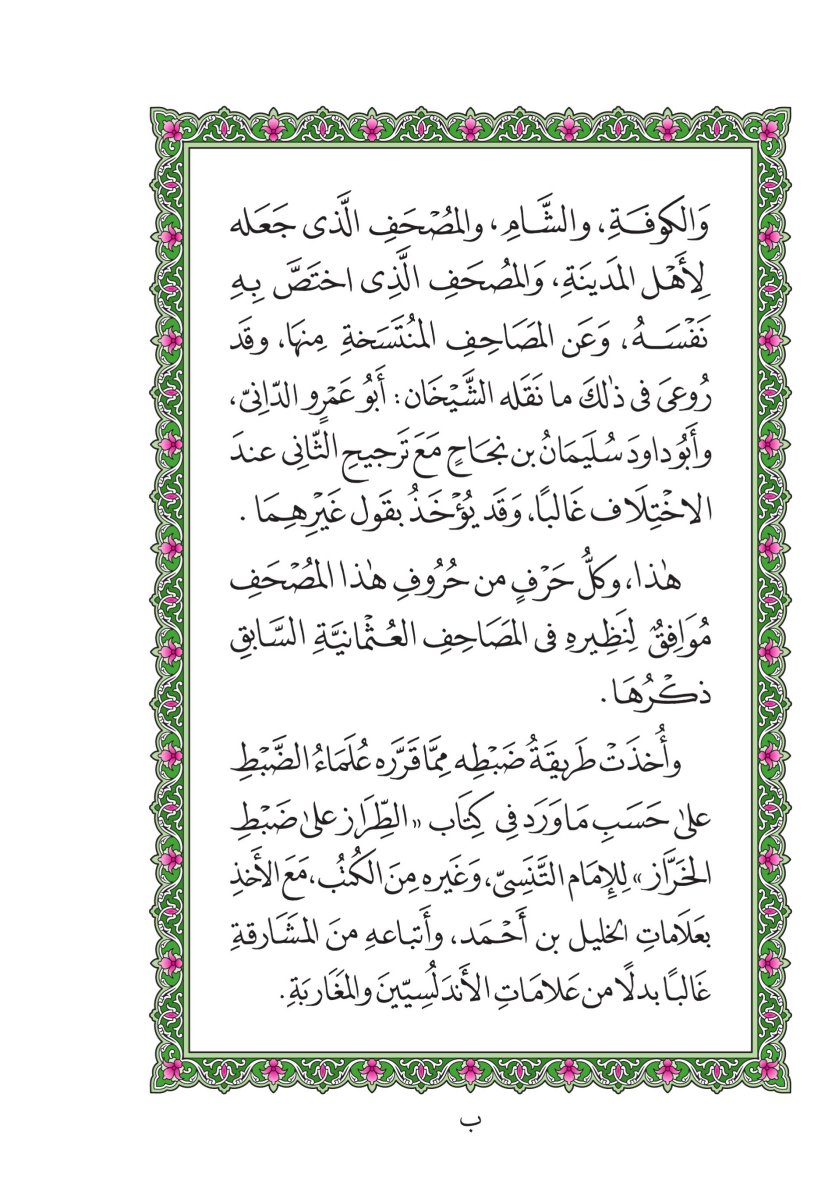 وَالكوفَةِ، والشَّامِ، والمُصْحَفِ الَّذى جَعَله
لِأَهْل المَدينَةِ، وَالمُصْحَفِ الَّذِى اختَصَّ بِهِ
نَفْسَهُ، وَعَن المَصَاحِفِ المُنْتَسَخةِ مِنهَا، وقَد
رُوعىَ فى ذٰلكَ ما نَقَله الشَّيْخَان: أَبُو عَمْرٍو الدّانىّ،
وأَبُو داودَ سُلَيمَانُ بن نجَاحٍ مَعَ تَرجيحِ الثّانِى عندَ
الاخْتِلَاف غَالبًا، وَقَد يُؤْخَذُ بقَول غَيْرِهِمَا .
هٰذا، وكلُّ حَرْفٍ من حُرُوفِ هٰذا المُصْحَفِ
مُوَافِقٌ لِنَظِيرهِ فى المَصَاحِفِ العُثْمانيَّةِ السَّابقِ
ذكْرُهَا .
وأُخذَتْ طَريقَةُ ضَبْطِه مِمَّا قَرَّرَه عُلَمَاءُ الضَّبْطِ
علىٰ حَسَبِ مَا وَرَد فِى كِتَاب «الطِّرَاز علىٰ ضَبْطِ
الخَرَّاز» لِلإِمَام التَّنَسِىّ، وَغَيره مِنَ الكُتُب، مَعَ الأَخذِ
بعَلَاماتِ الخليل بن أَحْمَد، وأَتباعهِ منَ المشَارقةِ
غَالبًا بدلًا من عَلامَاتِ الأَندَلُسِيّينَ والمَغَاربَةِ .
ب